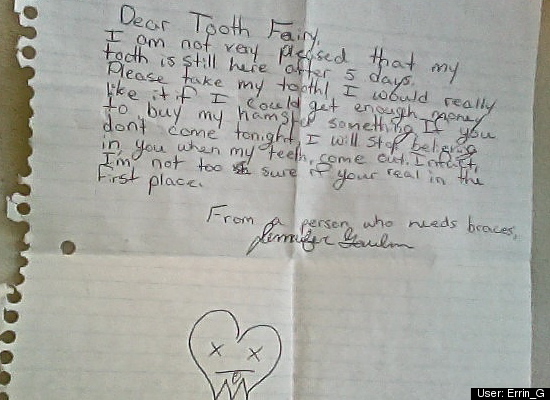 Dear Tooth Fairy,
I am not very pleased that my
tooth is still here after 5 days.
Please take my tooth! I would really
like it if I could get enough money
to buy my hamster something. If you
dont come tonight I will stop
in you when my teeth come out. Infact,
I'm not too sure if your real in the
first place.
From a person who needs braces,
Jennifer
User: Errin_G